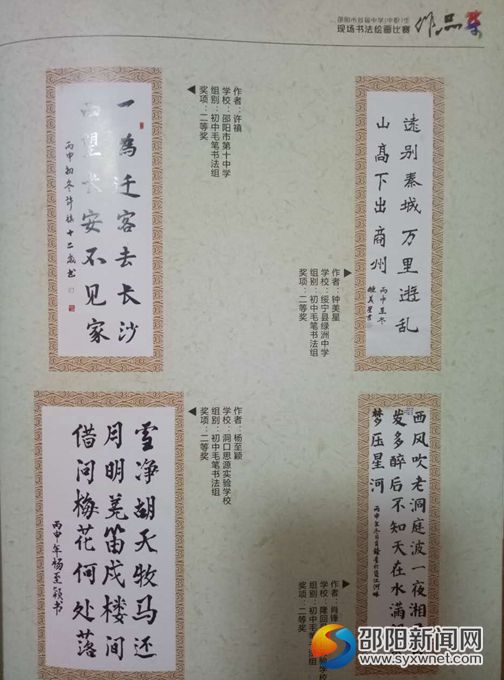 邵阳市首届中学(中职)生
现场书法绘画比赛
作品集
一为迁客去长沙
西望长安不见家
丙申初冬许禛十二岁书
作者：许禛
学校：邵阳市第十中学
组别：初中毛笔书法组
奖项：二等奖
远别秦城万里游乱
山高下出商州
丙申至冬
钟美星书
作者：钟美星
学校：绥宁县绿洲中学
组别：初中毛笔书法组
奖项：二等奖
雪净胡天牧马还
月明羌笛戍楼间
借问梅花何处落
丙申年杨至颖书
作者：杨至颖
学校：洞口思源实验学校
组别：初中毛笔书法组
奖项：二等奖
西风吹老洞庭波一夜湘
发多醉后不知天在水满
梦压星河
作者：肖锋
学校：隆回
组别：初中毛
奖项：二等奖
邵阳新闻网
www.syxwnet.com